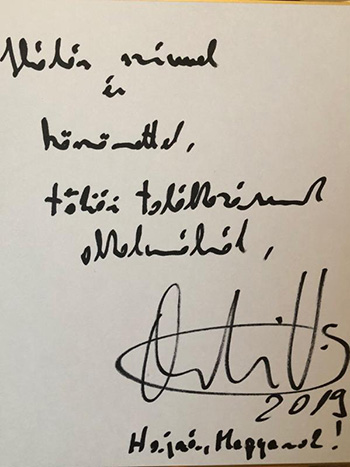 Hálás szívvel
és
köszönettel,
tókiói találkozásunk
alkalmából,
2019
Hajrá, Magyarok!